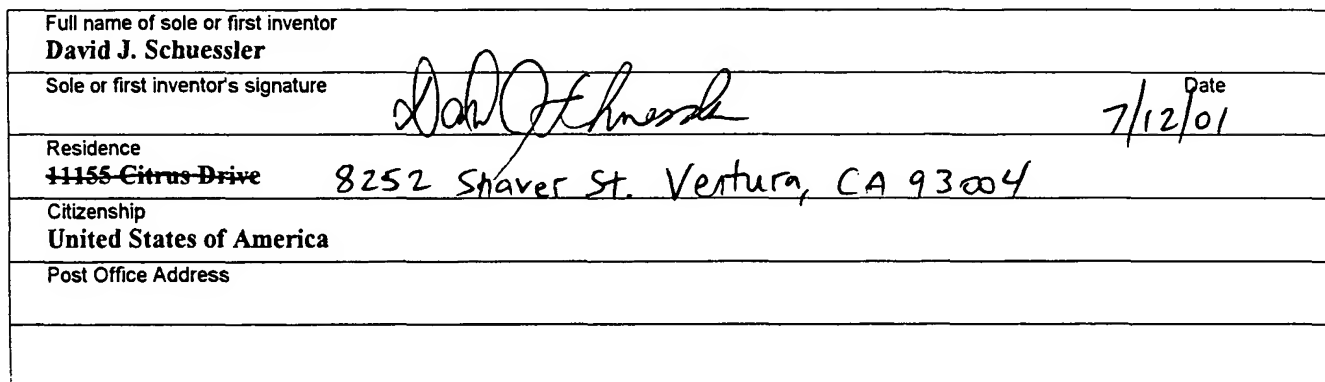 Full name of sole or first inventor
David J. Schuessler
Sole or first inventor's signature
David J Schuessler
Date
7/12/01
Residence
11155 Citrus Drive 8252 Shaver St. Ventura, CA 93004
Citizenship
United States of America
Post Office Address